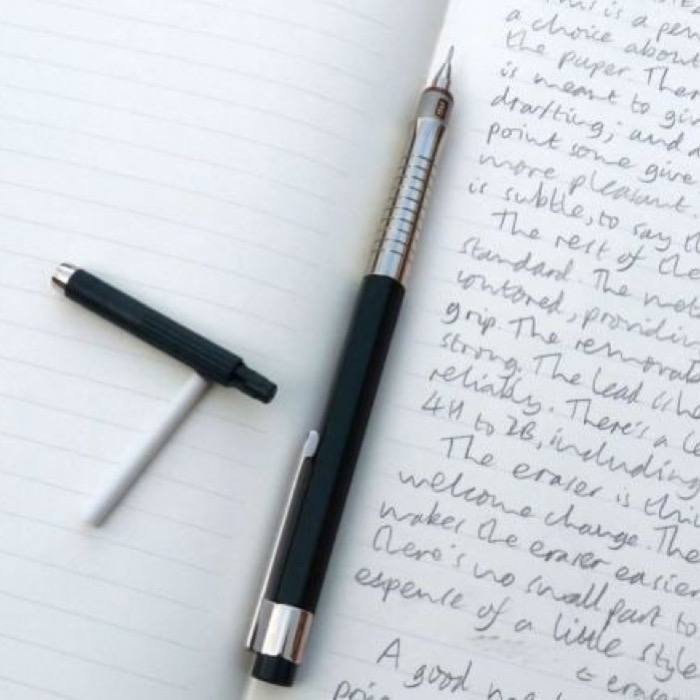 This is a pen
a choice about
the paper. Ther
is meant to giv
drafting; and a
point some give
more pleasant.
is subtle, to say th
The rest of the
standard. The
contored, providin
grip. The removab
strong. The lead is he
reliably. There's a le
4H to 2B, including
The eraser is thi
welcome change. The
makes the eraser easie
there's no small part to
expense of a little style
A good